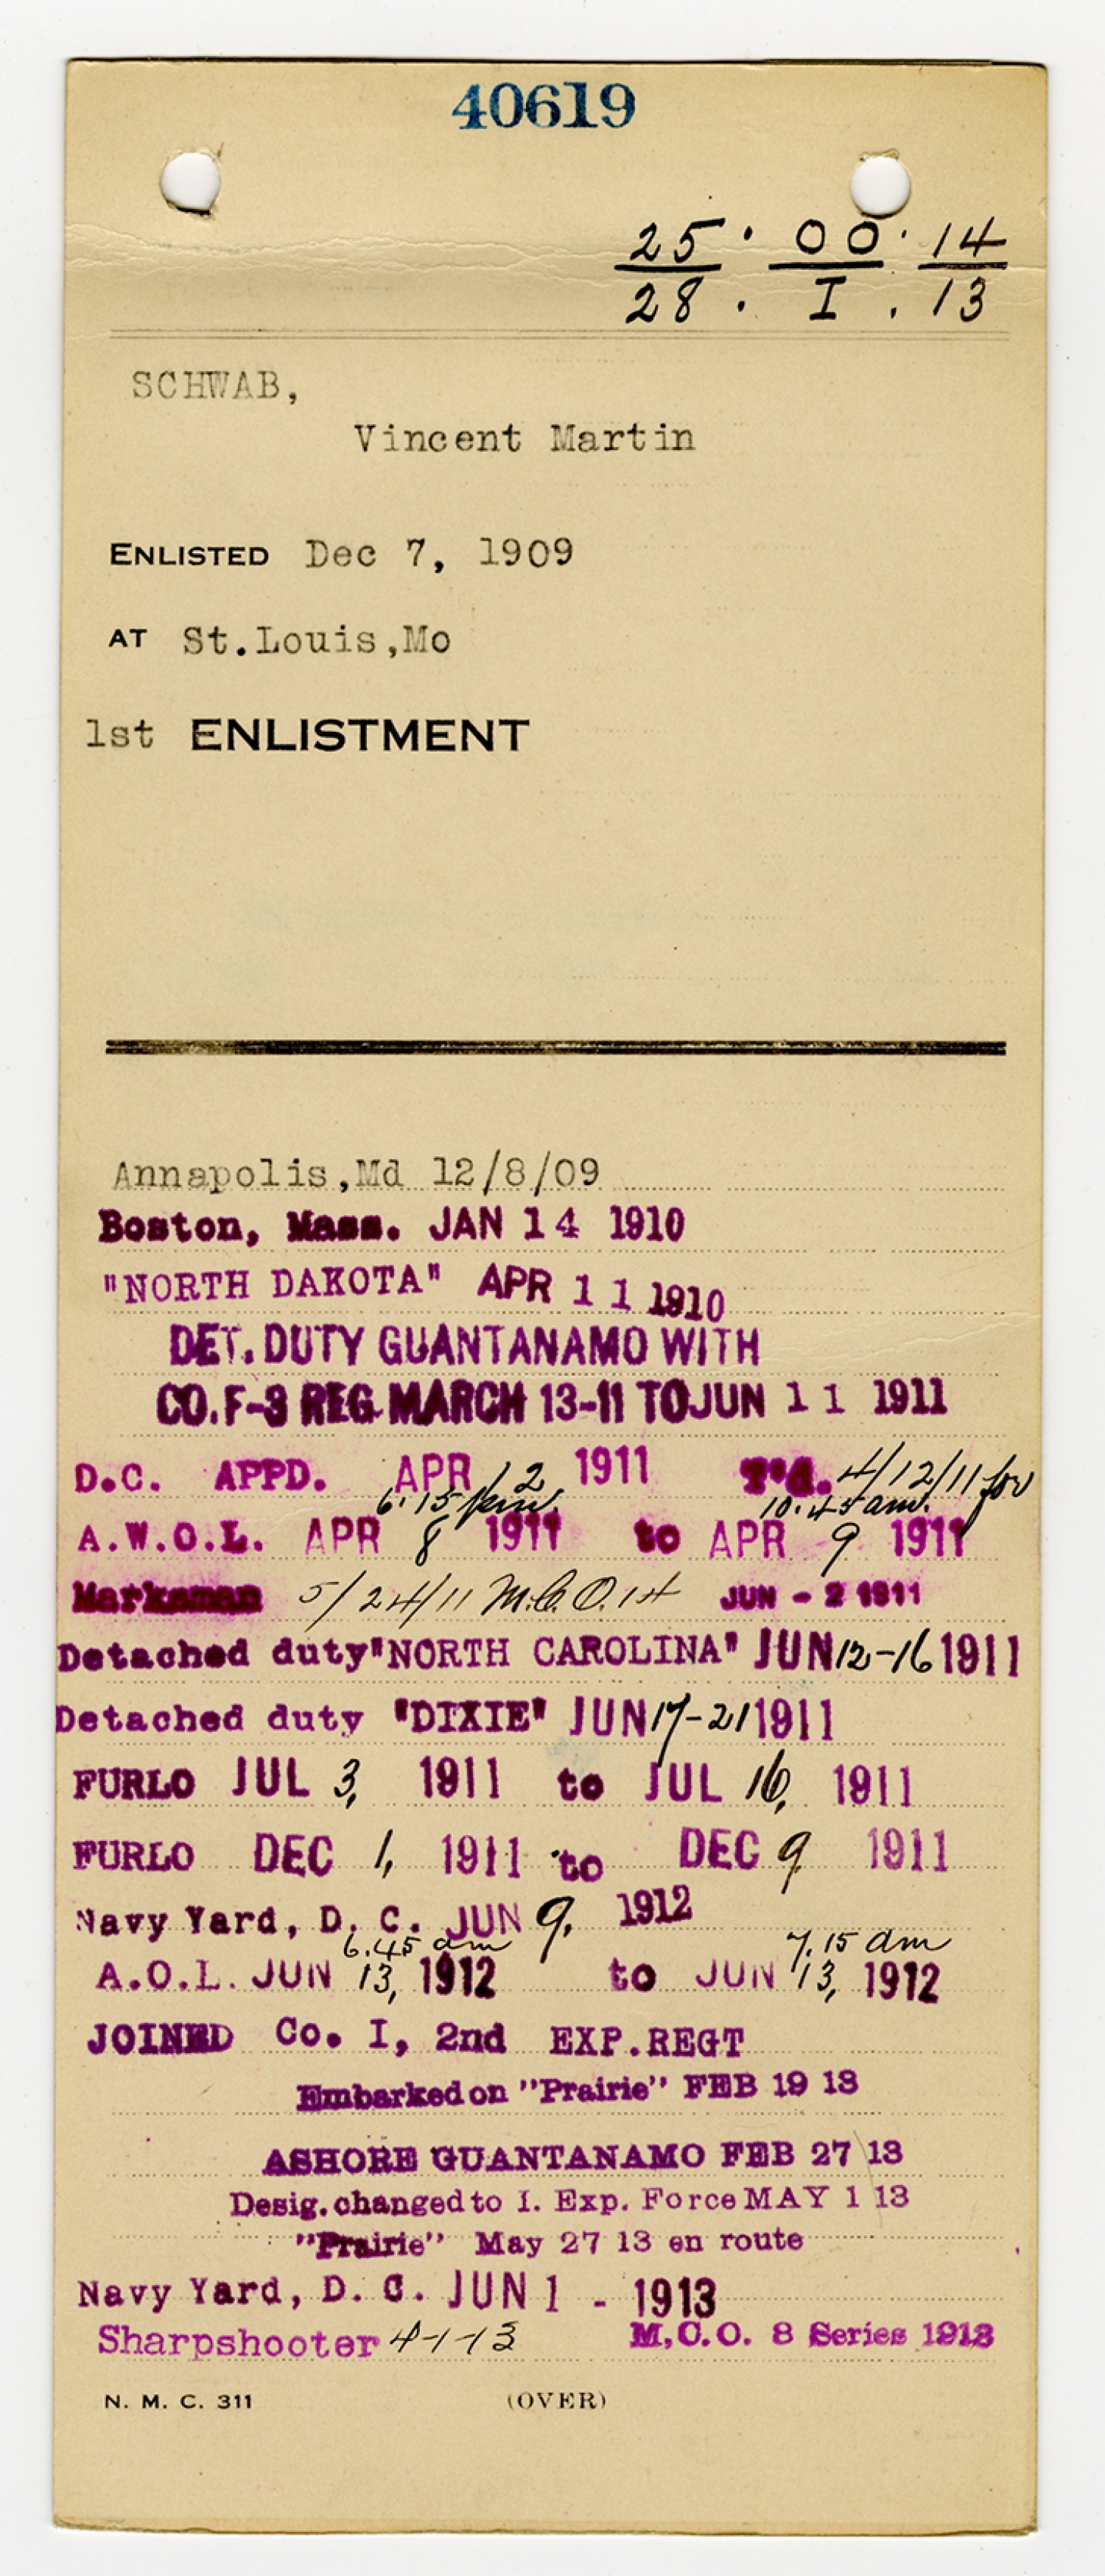 40619
25 . 00 . 14
28 . I . 13
SCHWAB,
Vincent Martin
ENLISTED Dec 7, 1909
AT St.Louis,Mo
1st ENLISTMENT
Annapolis,Md 12/8/09
Boston, Mass. JAN 14 1910
"NORTH DAKOTA" APR 11 1910
DET. DUTY GUANTANAMO WITH
CO. F-3 REG. MARCH 13-11 TO JUN 11 1911
D.C. APPD. APR 12 1911 T'd. 4/12/11 for
6.15 pm. 10.45 am.
A.W.O.L. APR 8 1911 to APR 9 1911
Marksman 5/24/11 M.C.O. 14 JUN - 2 1911
Detached duty "NORTH CAROLINA" JUN 12-16 1911
Detached duty "DIXIE" JUN 17-21 1911
FURLO JUL 3, 1911 to JUL 16, 1911
FURLO DEC 1, 1911 to DEC 9 1911
Navy Yard, D. C. JUN 9, 1912
6.45 am 7.15 am
A.O.L. JUN 13, 1912 to JUN 13, 1912
JOINED Co. I, 2nd EXP.REGT
Embarked on "Prairie" FEB 19 13
ASHORE GUANTANAMO FEB 27 13
Desig. changed to I. Exp. Force MAY 1 13
"Prairie" May 27 13 en route
Navy Yard, D. C. JUN 1 - 1913
Sharpshooter 4-1-13 M.C.O. 8 Series 1913
N. M. C. 311 (OVER)